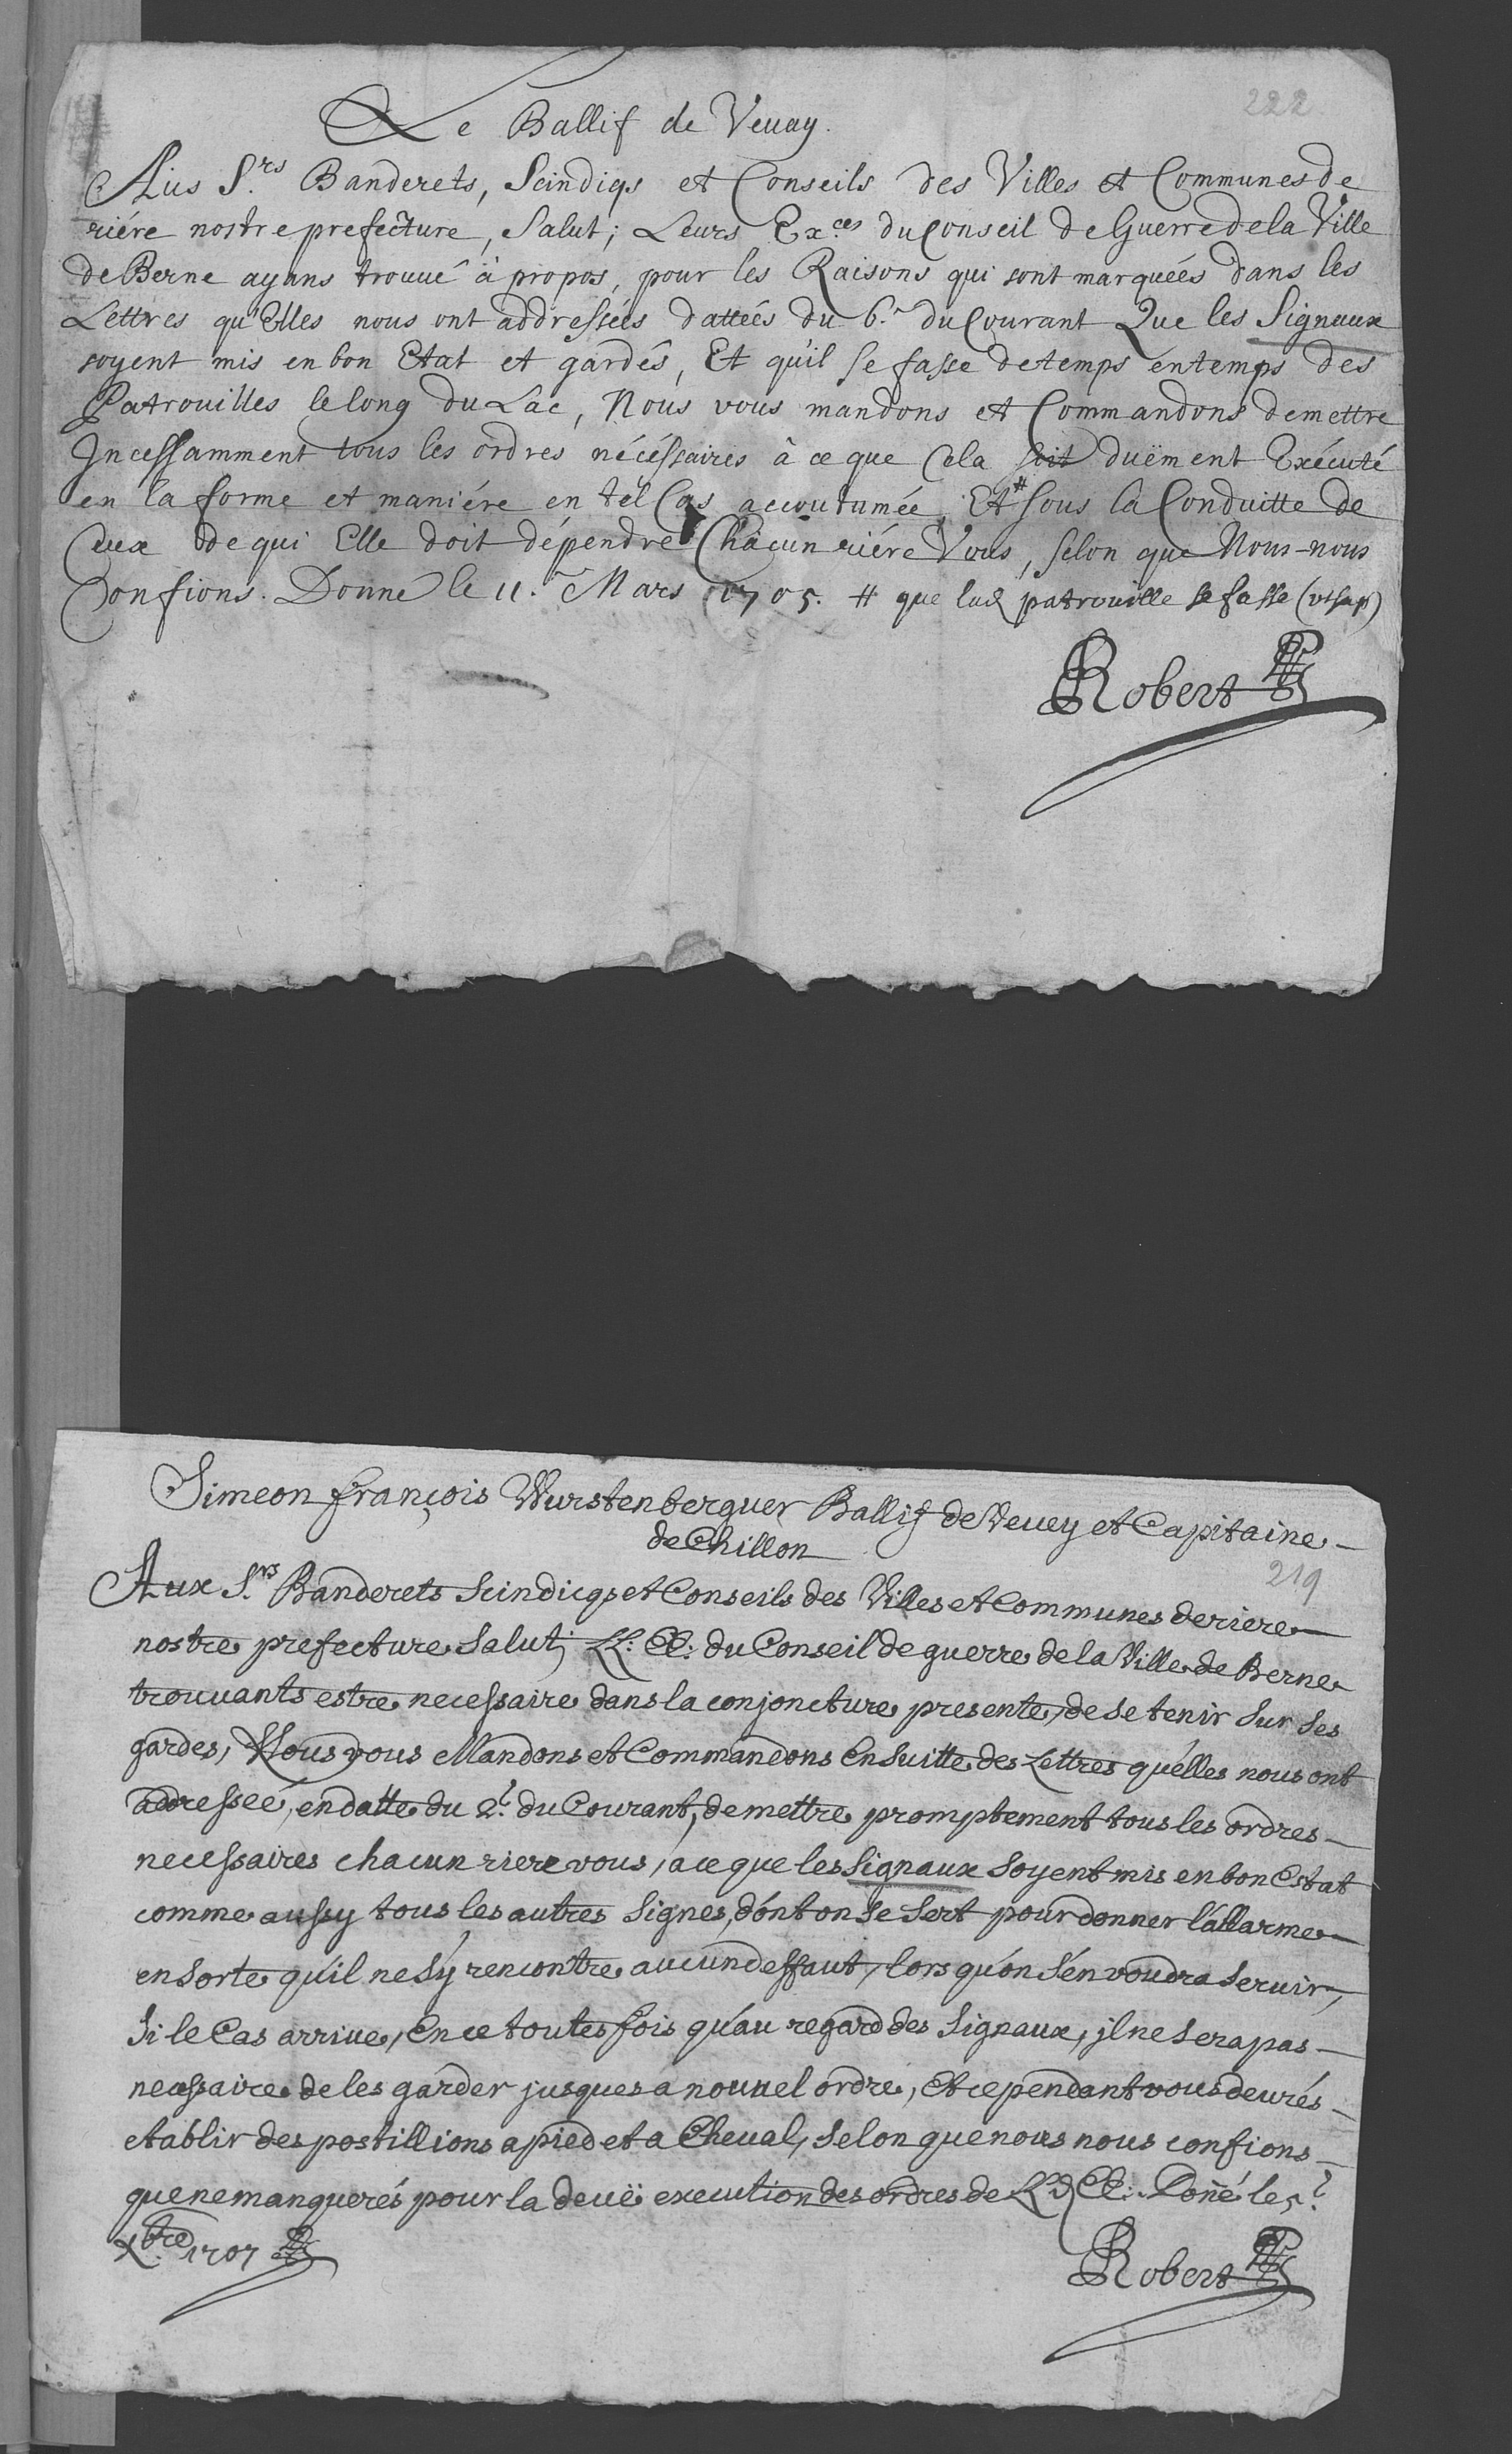 222
Le Ballif de Vevay.
Aus S.rs Banderets, Scindiqs et Conseils des Villes et Communes de
riére nostre prefecture, Salut; Leurs Ex.ces du Conseil de Guerre de la Ville
de Berne ayans trouué à propos, pour les Raisons qui sont marquéés dans les
Lettres qu'Elles nous ont addressées dattéés du 6.e du Courant Que les Signaux
soyent mis en bon Etat et gardés, Et qu'il se fasse de temps en temps des
Patrouilles le long du Lac, Nous vous mandons et Commandons de mettre
Incessamment tous les ordres nécéssaires à ce que Cela soit duëment Exécuté
en la forme et maniére en tel Cas accoutumée, Et # sous la Conduitte de
Ceux de qui Elle doit dépendre Chacun riére Vous, selon que Nous-nous
Confions. Donné le 11.e Mars 1705. # que lad patrouille se fasse (vt sup)
Robert
Simeon françois Wurstenberguer Ballif de Vevey et Capitaine
de Chillon
219
Aux S.rs Banderets Scindicqs et Conseils des Villes et Communes deriere
nostre prefecture Salut; LL: EE: du Conseil de guerre de la Ville de Berne
trouuants estre necessaire dans la conjoncture presente, de se tenir sur ses
gardes, Nous vous Mandons et Commandons Ensuitte des Lettres qu'elles nous ont
adressée, en datte du 2.e du Courant, de mettre promptement tous les ordres
necessaires chacun riere vous, a ce que les Signaux Soyent mis en bon Estat
comme aussy tous les autres Signes, dónt on se sert pour donner l'allarme
en sorte qu'il ne s'y rencontre aucun deffaut, lors qu'on s'en voudra seruir,
Si le Cas arriue, En ce toutes fois qu'au regard des Signaux, jl ne sera pas
necessaire de les garder jusques a nouuel ordre, Et cependant vous deurés
etablir des postillions a pied et a Cheual, selon que nous nous confions
que ne manquerés pour la deuë execution des ordres de LLd EE: Doñé le 5.e
Xbre 1707
Robert